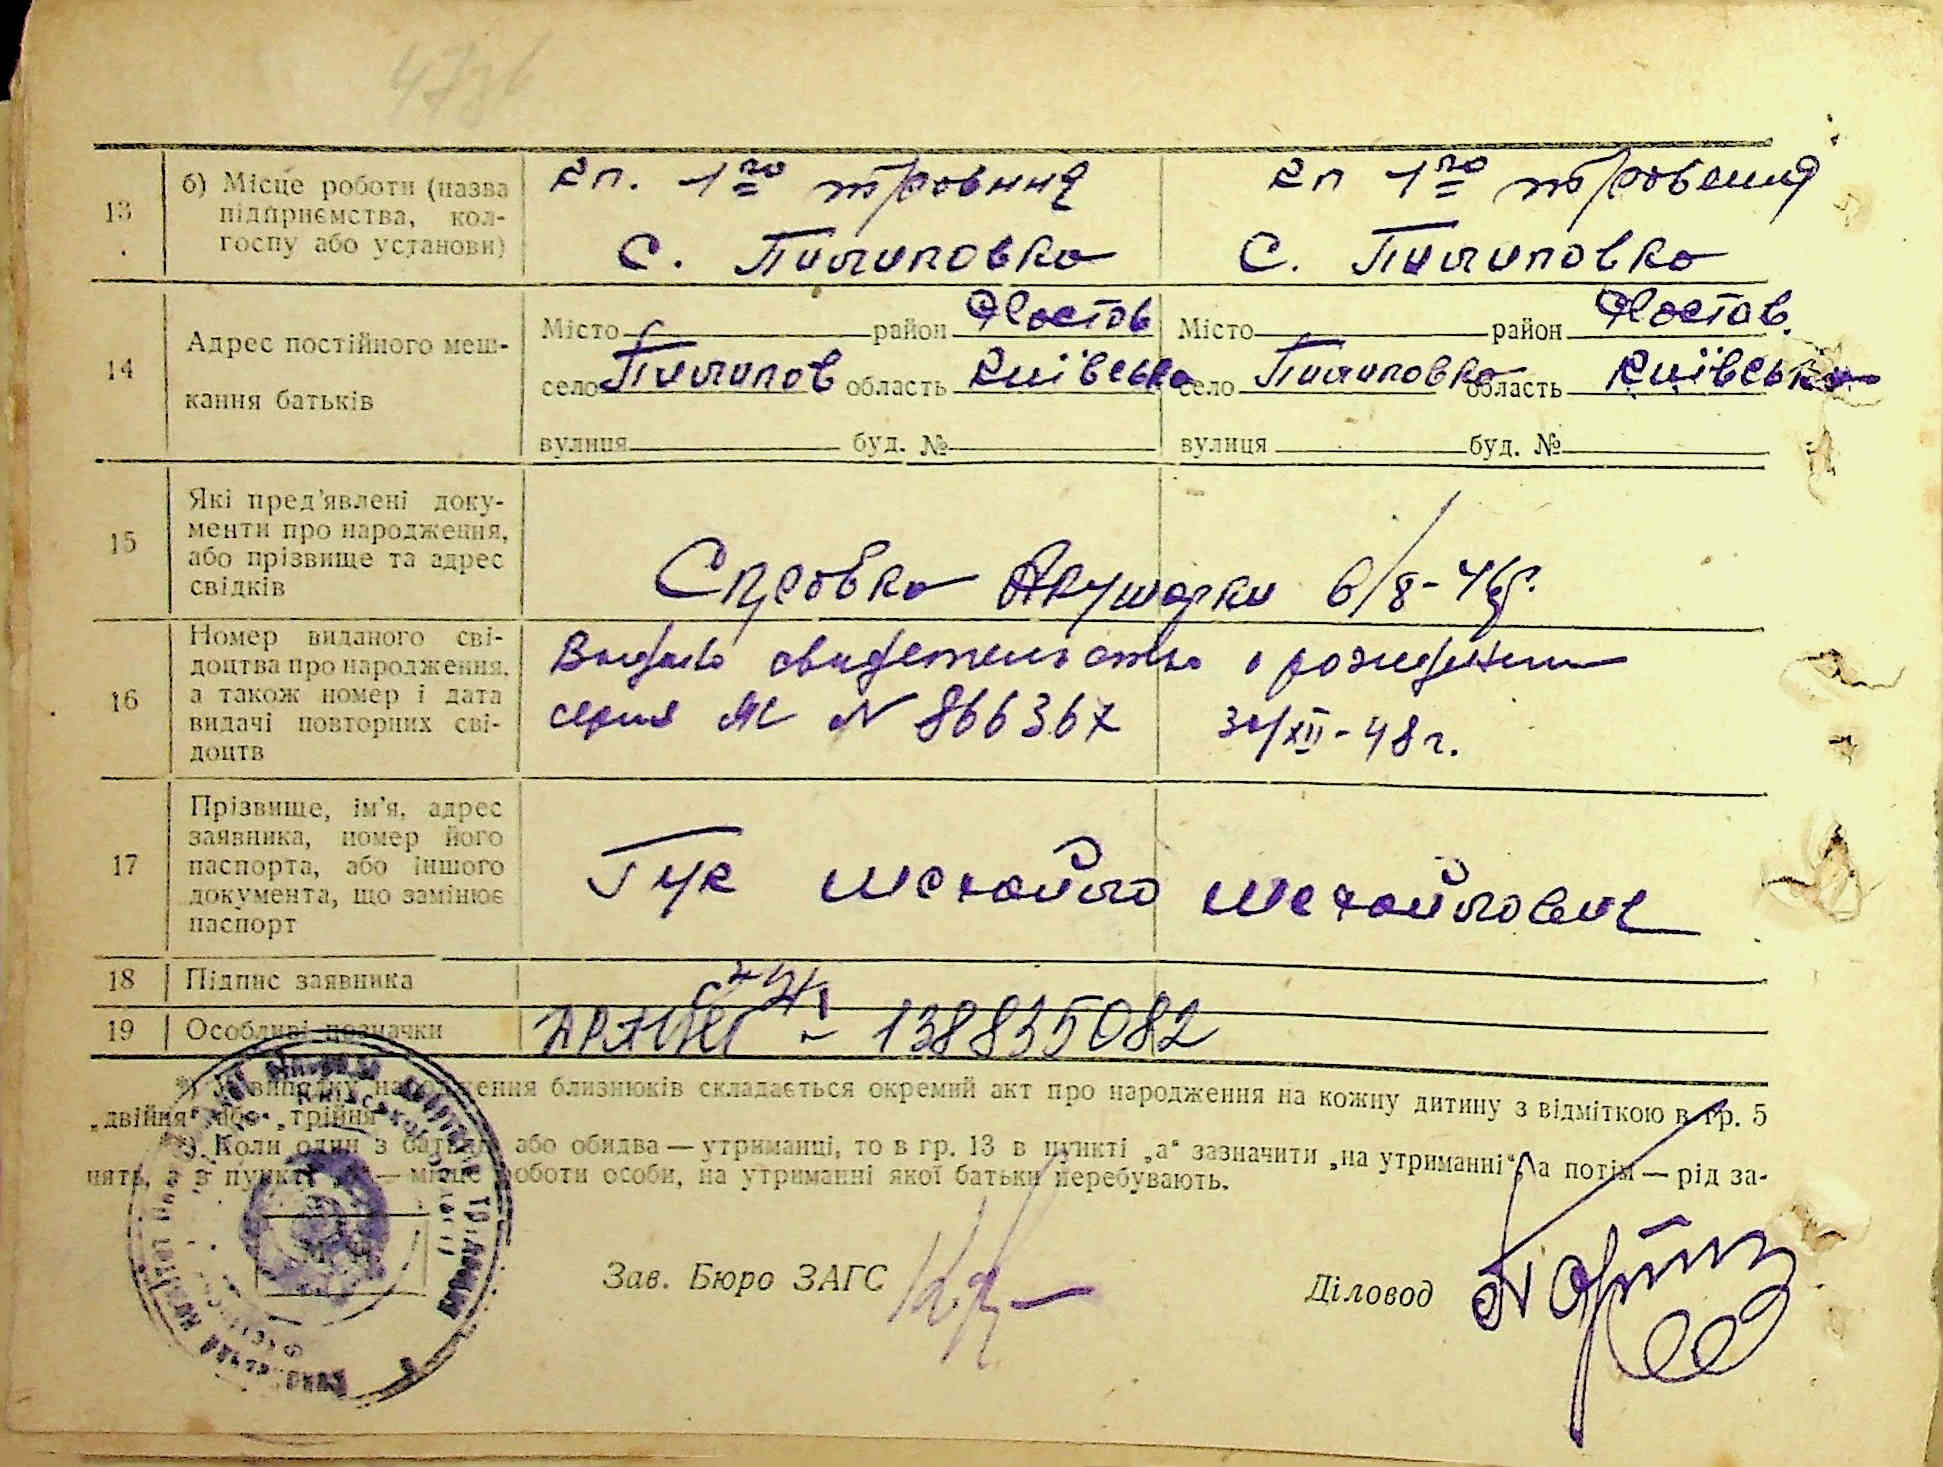 13 б) Місце роботи (назва підприємства, колгоспу або установи)
кп. 1го травння
кп 1го травення
с. Пилиповка
с. Пилиповка
14 Адрес постійного мешкання батьків
Місто район Фастов
Місто район Фастов.
село Пилипов область Київська
село Пилиповка область Київська
вулиця буд. №
вулиця буд. №
15 Які пред'явлені документи про народження, або прізвище та адрес свідків
Справка Акушерки 6/8-46г.
16 Номер виданого свідоцтва про народження, а також номер і дата видачі повторних свідоцтв
Выдано свидетельство о рождении
серия № 866367 /XII-48г.
17 Прізвище, ім'я, адрес заявника, номер його паспорта, або іншого документа, що замінює паспорт
Гук Михайло Михайлович
18 Підпис заявника
19 Особливі позначки
- 138835082
*) У випадку народження близнюків складається окремий акт про народження на кожну дитину з відміткою в гр. 5
„двійня" або „трійня"
Коли один з батьків, або обидва — утриманці, то в гр. 13 в пункті „а" зазначити „на утриманні", а потім — рід за-
нять, в пункті — місце роботи особи, на утриманні якої батьки перебувають.
Зав. Бюро ЗАГС
Діловод